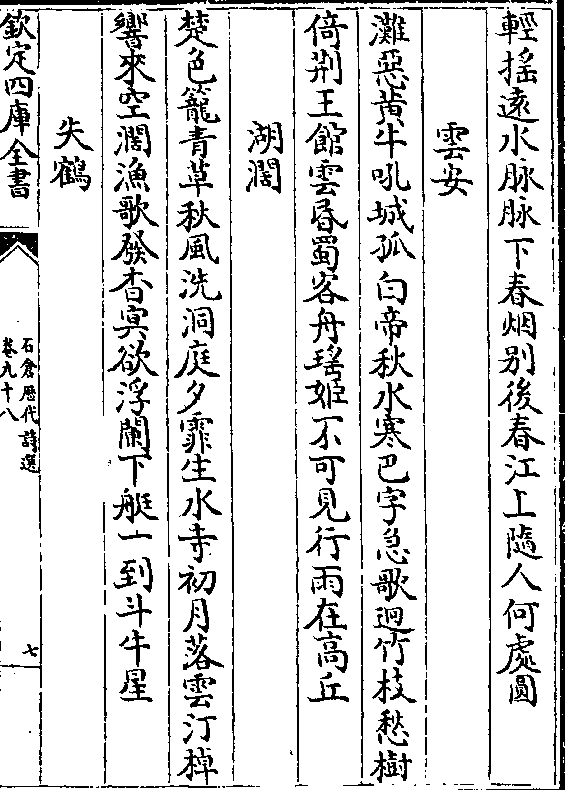 輕揺遠水脉脉下春烟别後春江上隨人何處圓
雲安
灘惡黄牛吼城孤白帝秋水寒巴字急歌迥竹枝愁樹
倚荆王館雲昏蜀客舟瑶姬不可見行雨在高丘
湖濶
楚色籠青草秋風洗洞庭夕霏生水寺初月落雲汀棹
響來空濶漁歌發杳冥欲浮闌下艇一到斗牛星
失鶴
欽定四庫全書
石倉歴代詩選
卷九十八
七